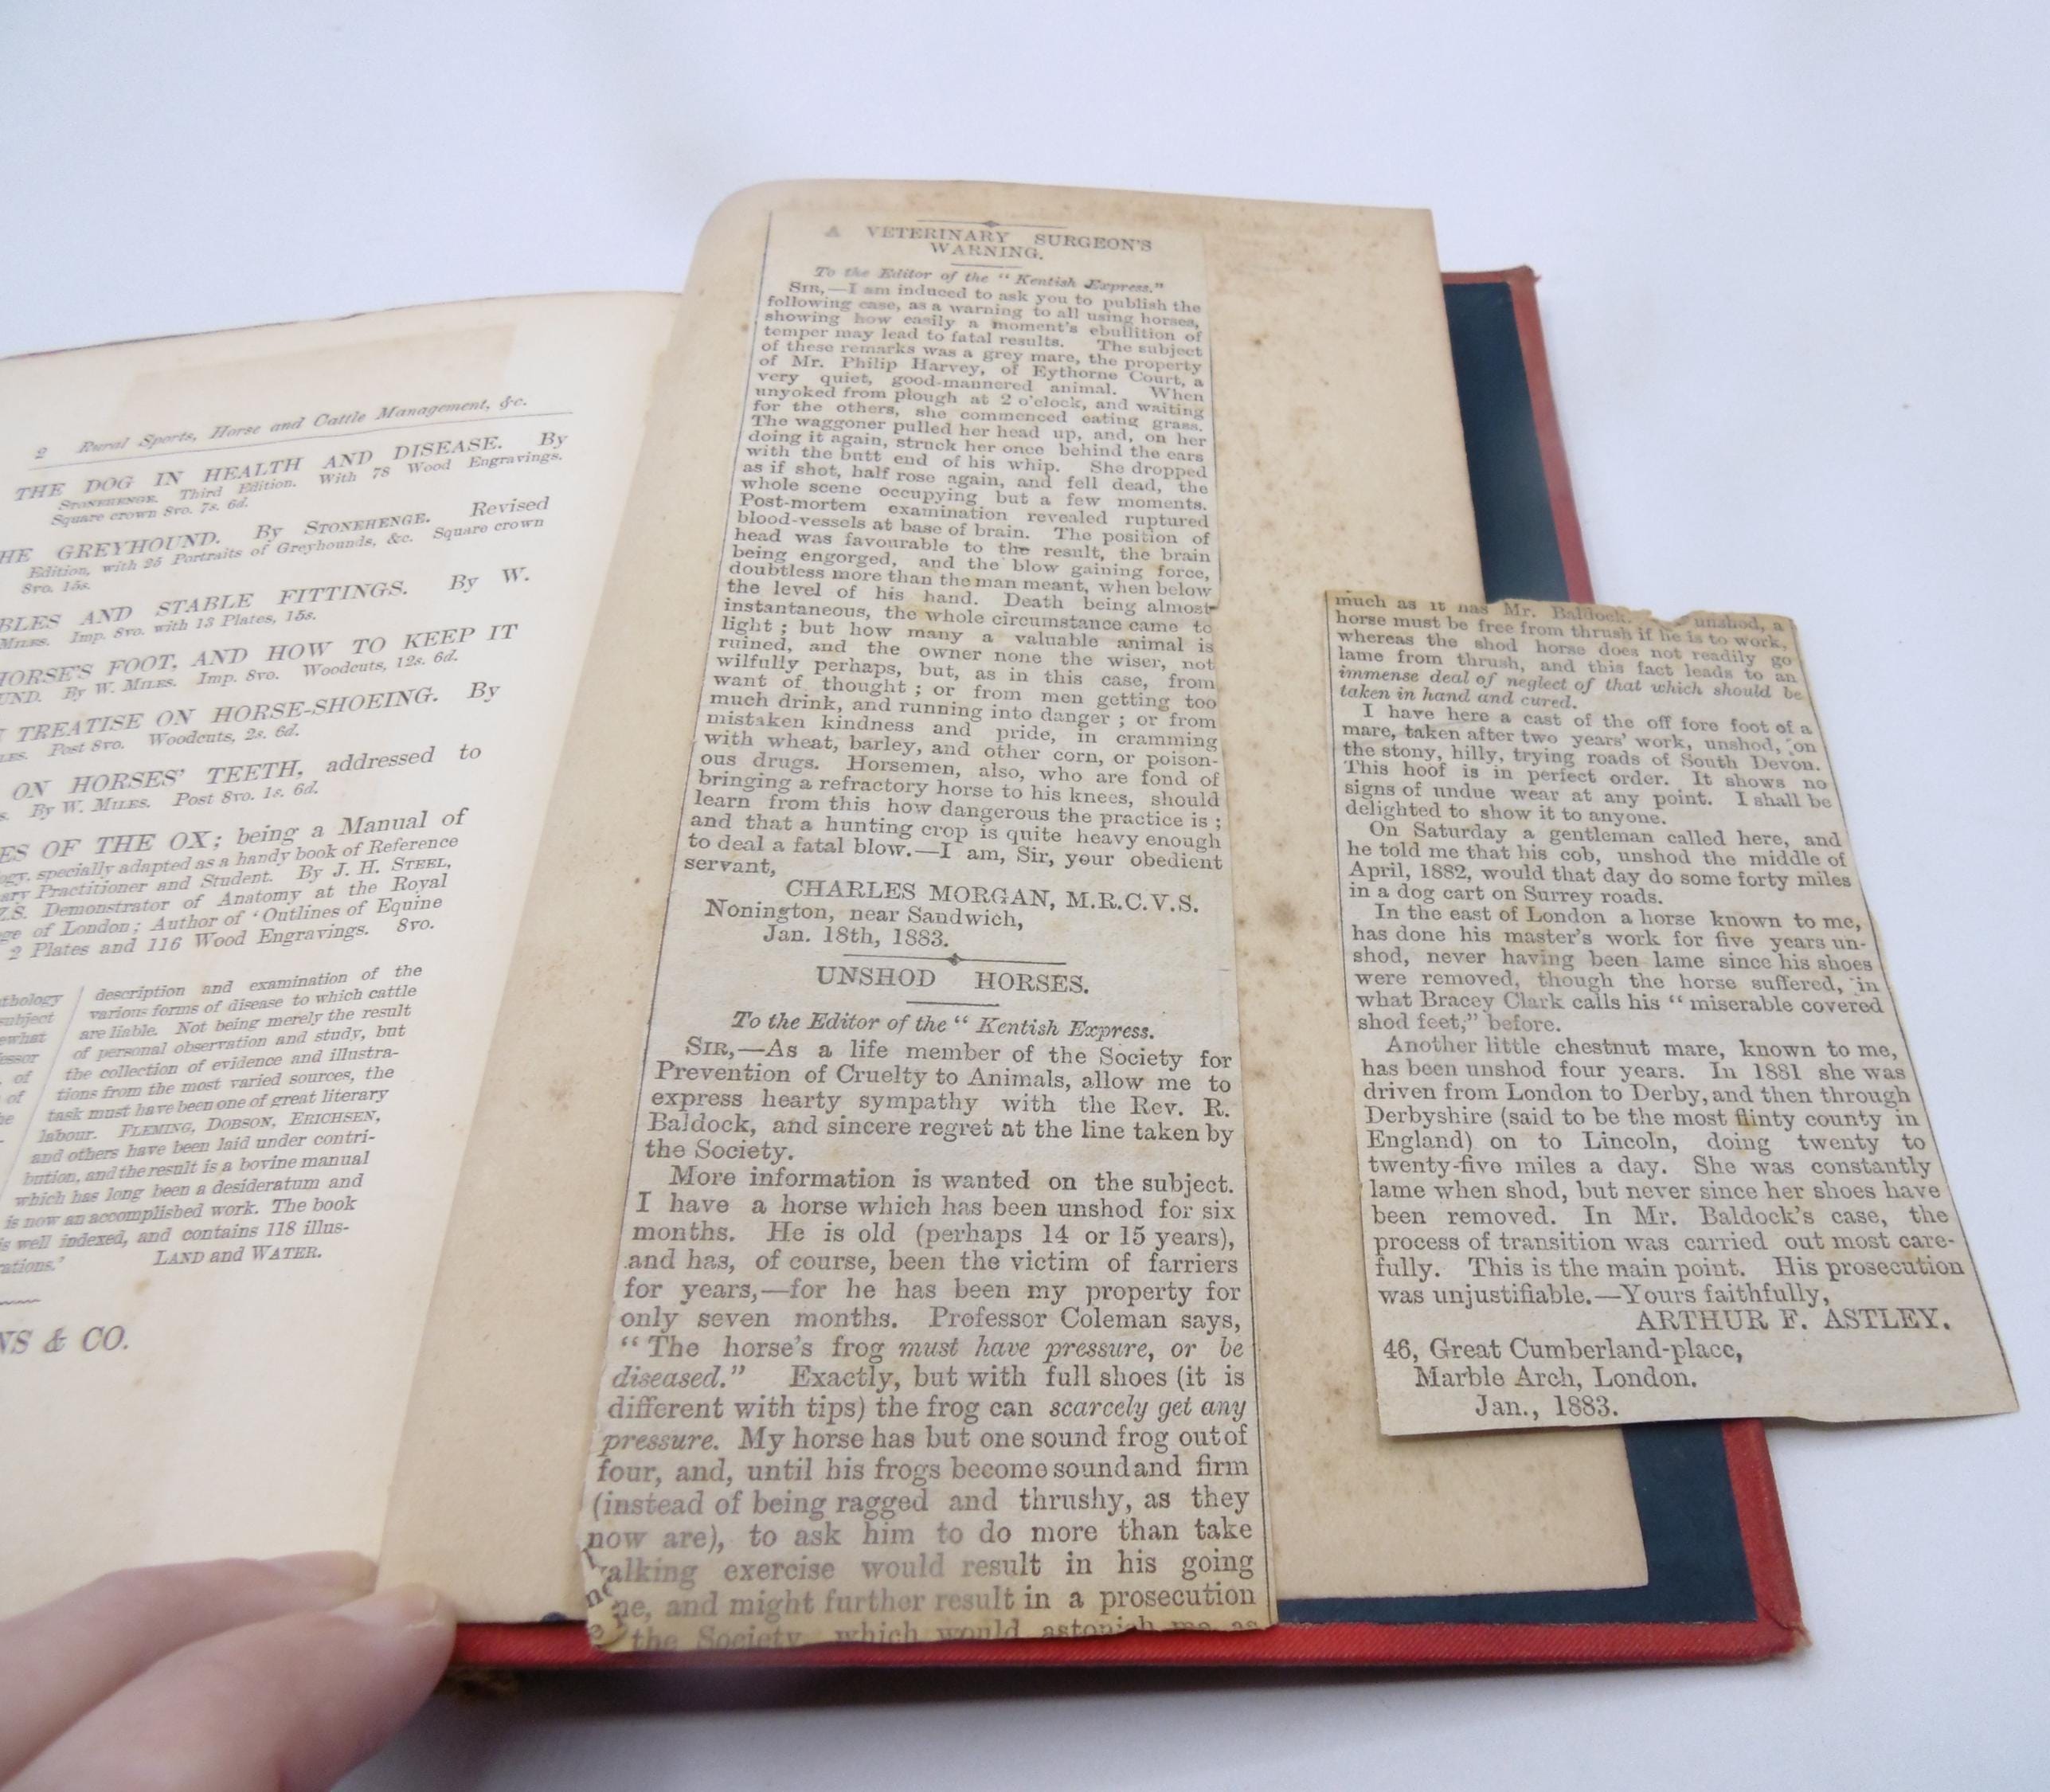 2 Rural Sports, Horse and Cattle Management, &c.
THE DOG IN HEALTH AND DISEASE. By
STONEHENGE. Third Edition. With 78 Wood Engravings.
Square crown 8vo. 7s. 6d.
HE GREYHOUND. By STONEHENGE. Revised
Edition, with 25 Portraits of Greyhounds, &c. Square crown
8vo. 15s.
BLES AND STABLE FITTINGS. By W.
MILES. Imp. 8vo. with 13 Plates, 15s.
HORSE'S FOOT, AND HOW TO KEEP IT
UND. By W. MILES. Imp. 8vo. Woodcuts, 12s. 6d.
TREATISE ON HORSE-SHOEING. By
LES. Post 8vo. Woodcuts, 2s. 6d.
ON HORSES' TEETH, addressed to
s. By W. MILES. Post 8vo. 1s. 6d.
ES OF THE OX; being a Manual of
ogy, specially adapted as a handy book of Reference
ary Practitioner and Student. By J. H. STEEL,
Z.S. Demonstrator of Anatomy at the Royal
ge of London; Author of 'Outlines of Equine
2 Plates and 116 Wood Engravings. 8vo.
thology
subject
ewhat
essor
of
of
he
description and examination of the
various forms of disease to which cattle
are liable. Not being merely the result
of personal observation and study, but
the collection of evidence and illustra-
tions from the most varied sources, the
task must have been one of great literary
labour. FLEMING, DOBSON, ERICHSEN,
and others have been laid under contri-
bution, and the result is a bovine manual
which has long been a desideratum and
is now an accomplished work. The book
is well indexed, and contains 118 illus-
rations.' LAND and WATER.
NS & CO.
A VETERINARY SURGEON'S
WARNING.
To the Editor of the "Kentish Express."
SIR,—I am induced to ask you to publish the
following case, as a warning to all using horses,
showing how easily a moment's ebullition of
temper may lead to fatal results. The subject
of these remarks was a grey mare, the property
of Mr. Philip Harvey, of Eythorne Court, a
very quiet, good-mannered animal. When
unyoked from plough at 2 o'clock, and waiting
for the others, she commenced eating grass.
The waggoner pulled her head up, and, on her
doing it again, struck her once behind the ears
with the butt end of his whip. She dropped
as if shot, half rose again, and fell dead, the
whole scene occupying but a few moments.
Post-mortem examination revealed ruptured
blood-vessels at base of brain. The position of
head was favourable to the result, the brain
being engorged, and the blow gaining force,
doubtless more than the man meant, when below
the level of his hand. Death being almost
instantaneous, the whole circumstance came to
light; but how many a valuable animal is
ruined, and the owner none the wiser, not
wilfully perhaps, but, as in this case, from
want of thought; or from men getting too
much drink, and running into danger; or from
mistaken kindness and pride, in cramming
with wheat, barley, and other corn, or poison-
ous drugs. Horsemen, also, who are fond of
bringing a refractory horse to his knees, should
learn from this how dangerous the practice is;
and that a hunting crop is quite heavy enough
to deal a fatal blow.—I am, Sir, your obedient
servant,
CHARLES MORGAN, M.R.C.V.S.
Nonington, near Sandwich,
Jan. 18th, 1883.
UNSHOD HORSES.
To the Editor of the "Kentish Express.
SIR,—As a life member of the Society for
Prevention of Cruelty to Animals, allow me to
express hearty sympathy with the Rev. R.
Baldock, and sincere regret at the line taken by
the Society.
More information is wanted on the subject.
I have a horse which has been unshod for six
months. He is old (perhaps 14 or 15 years),
and has, of course, been the victim of farriers
for years,—for he has been my property for
only seven months. Professor Coleman says,
"The horse's frog must have pressure, or be
diseased." Exactly, but with full shoes (it is
different with tips) the frog can scarcely get any
pressure. My horse has but one sound frog out of
four, and, until his frogs become sound and firm
(instead of being ragged and thrushy, as they
now are), to ask him to do more than take
alking exercise would result in his going
ne, and might further result in a prosecution
the Society, which would astonish me as
much as it has Mr. Baldock. unshod, a
horse must be free from thrush if he is to work,
whereas the shod horse does not readily go
lame from thrush, and this fact leads to an
immense deal of neglect of that which should be
taken in hand and cured.
I have here a cast of the off fore foot of a
mare, taken after two years' work, unshod, on
the stony, hilly, trying roads of South Devon.
This hoof is in perfect order. It shows no
signs of undue wear at any point. I shall be
delighted to show it to anyone.
On Saturday a gentleman called here, and
he told me that his cob, unshod the middle of
April, 1882, would that day do some forty miles
in a dog cart on Surrey roads.
In the east of London a horse known to me,
has done his master's work for five years un-
shod, never having been lame since his shoes
were removed, though the horse suffered, in
what Bracey Clark calls his "miserable covered
shod feet," before.
Another little chestnut mare, known to me,
has been unshod four years. In 1881 she was
driven from London to Derby, and then through
Derbyshire (said to be the most flinty county in
England) on to Lincoln, doing twenty to
twenty-five miles a day. She was constantly
lame when shod, but never since her shoes have
been removed. In Mr. Baldock's case, the
process of transition was carried out most care-
fully. This is the main point. His prosecution
was unjustifiable.—Yours faithfully,
ARTHUR F. ASTLEY.
46, Great Cumberland-place,
Marble Arch, London.
Jan., 1883.